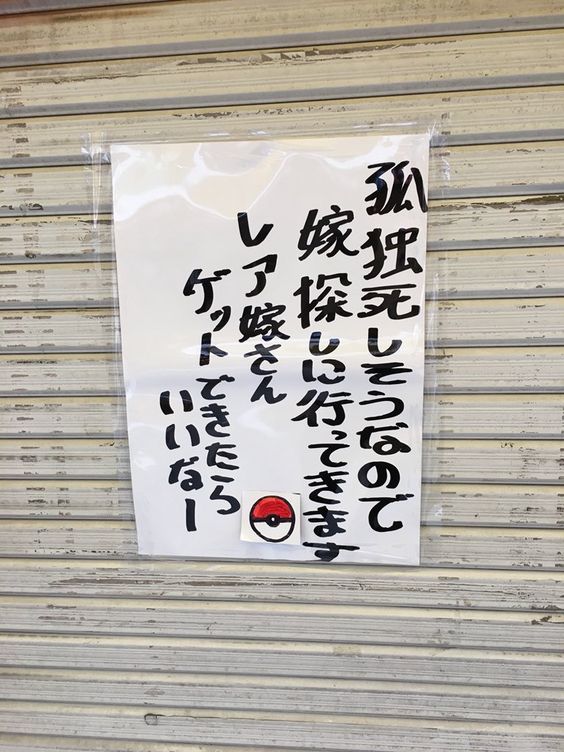 孤独死しそうなので
嫁探しに行ってきます
レア嫁さん
ゲットできたら
いいなー